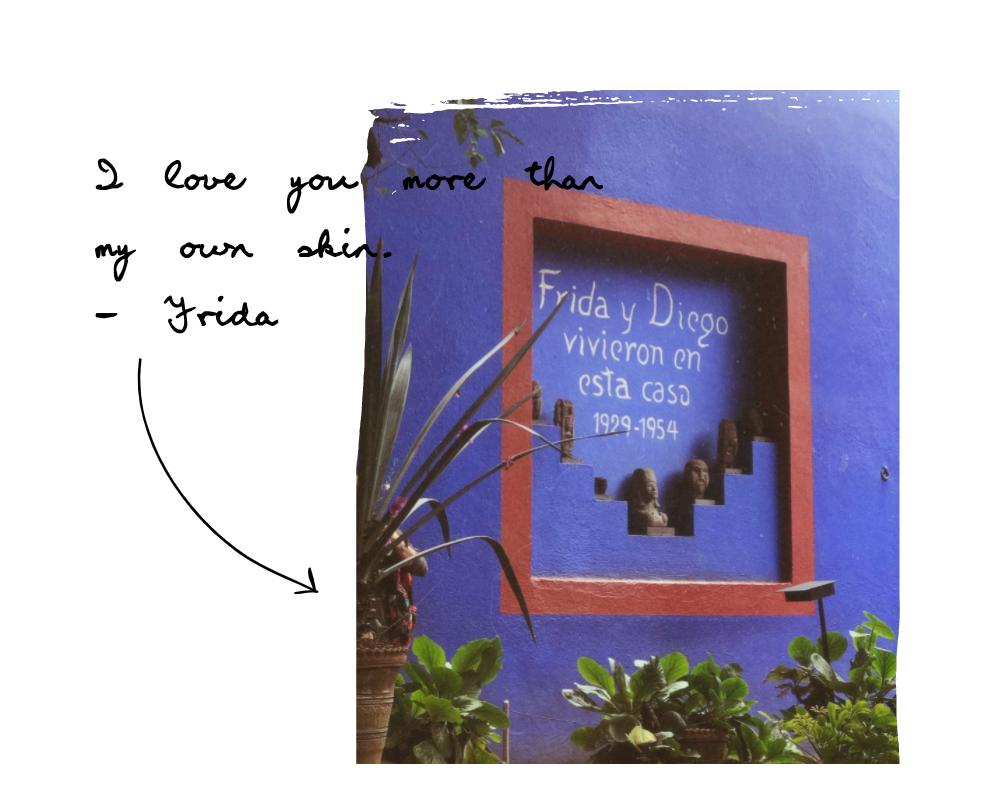 I love you more than
my own skin.
- Frida
Frida y Diego
vivieron en
esta casa
1929-1954